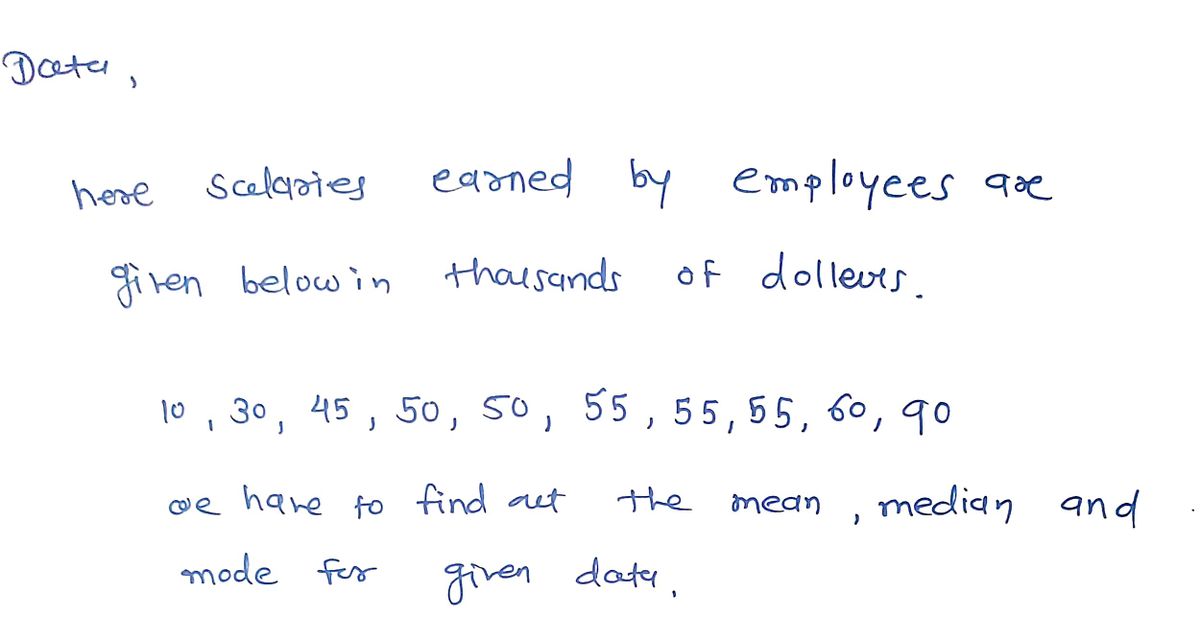 Data,
here salaries earned by employees are
given below in thousands of dollars.
10, 30, 45, 50, 50, 55, 55, 55, 60, 90
we have to find out the mean, median and
mode for given data.